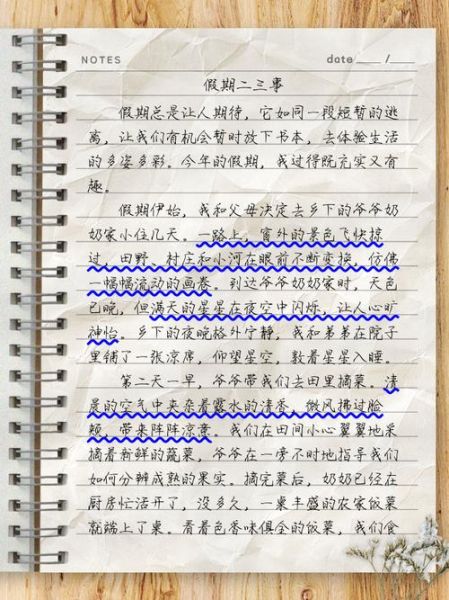 NOTES
date____/____
假期二三事
假期总是让人期待，它如同一段短暂的逃
离，让我们有机会暂时放下书本，去体验生活
的多姿多彩。今年的假期，我过得既充实又有
趣。
假期伊始，我和父母决定去乡下的爷爷奶
奶家小住几天。一路上，窗外的景色飞快掠
过，田野、村庄和小河在眼前不断变换，仿佛
一幅幅流动的画卷。到达爷爷奶奶家时，天色
已晚，但满天的星星在夜空中闪烁，让人心旷
神怡。乡下的夜晚格外宁静，我和弟弟在院子
里铺了一张凉席，仰望星空，数着星星入睡。
第二天一早，爷爷带我们去田里摘菜。清
晨的空气中夹杂着露水的清香，微风拂过脸
颊，带来阵阵凉意。我们在田间小心翼翼地采
摘着新鲜的蔬菜，爷爷在一旁不时地指导我们
如何分辨成熟的果实。摘完菜后，奶奶已经在
厨房忙活开了，没多久，一桌丰盛的农家饭菜
就端上了桌。看着色香味俱全的饭菜，我们食